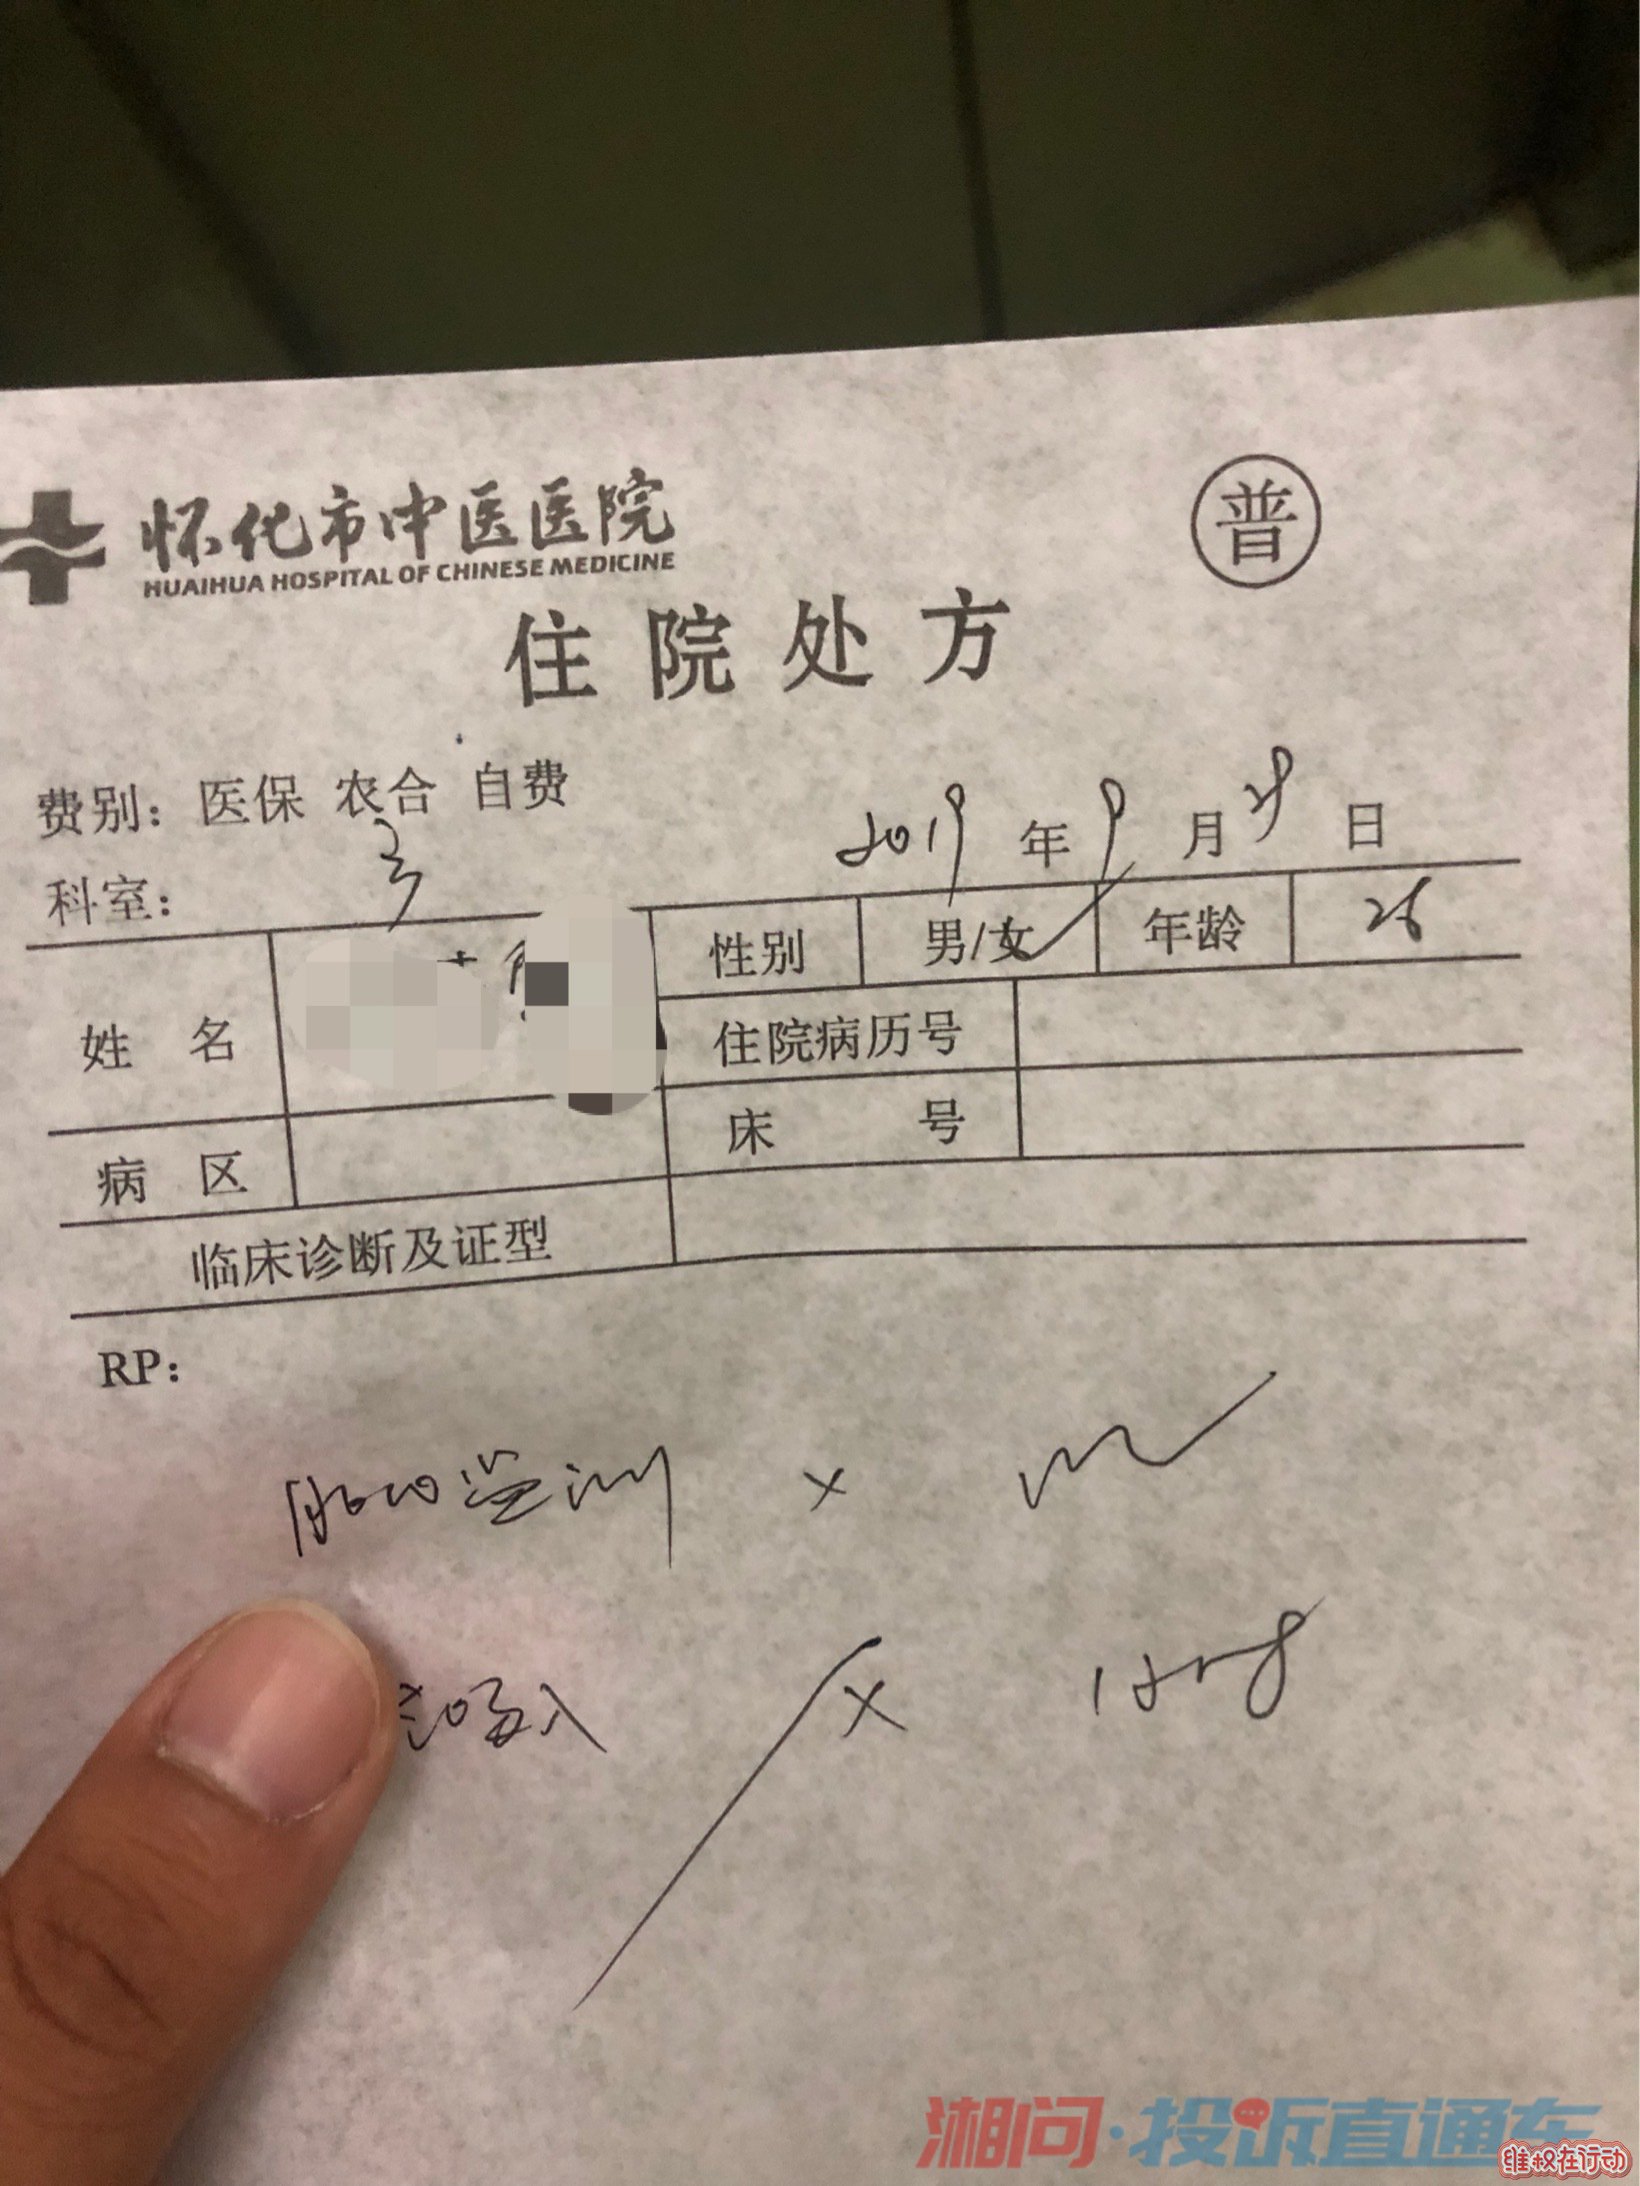 怀化市中医医院
HUAIHUA HOSPITAL OF CHINESE MEDICINE
普
住院处方
费别：医保 农合 自费
2019年9月28日
科室：
姓名
性别 男/女 年龄 26
住院病历号
病区
床号
临床诊断及证型
RP：
胎心监测 ×
吸入 ×
湘问·投诉直通车
维权在行动